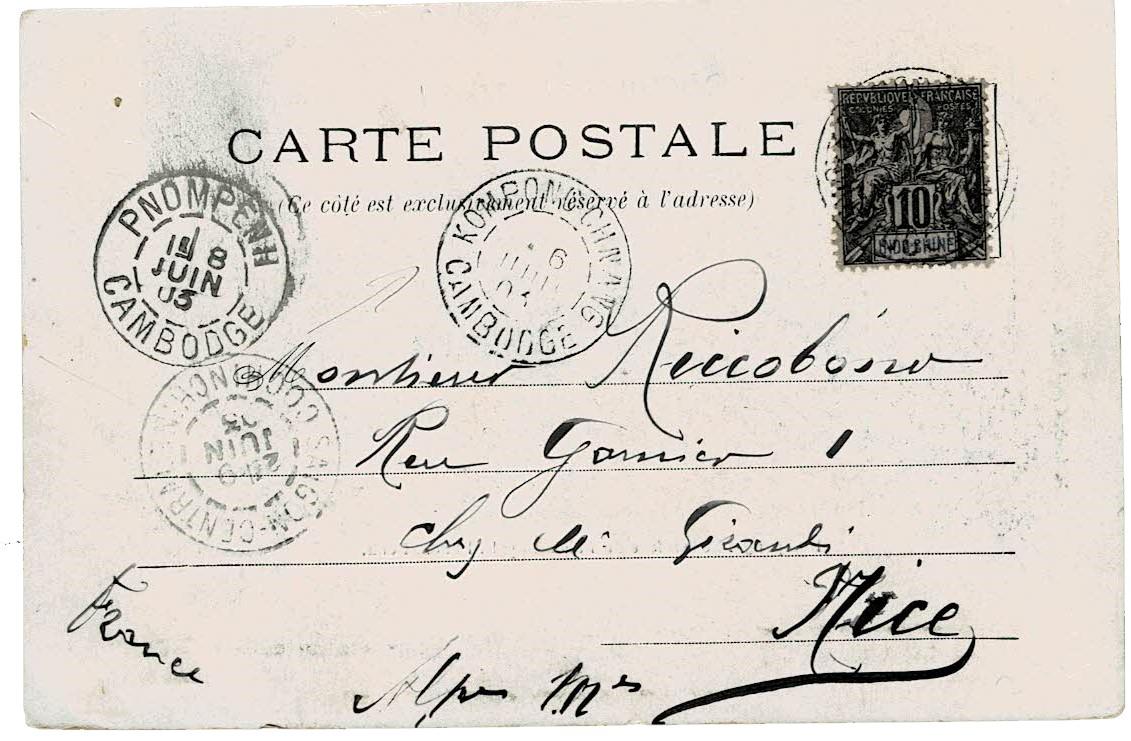 CARTE POSTALE
(Ce côté est exclusivement réservé à l'adresse)
REPUBLIQUE FRANÇAISE
COLONIES POSTES
10
INDO-CHINE
PNOMPENH
8
JUIN
03
CAMBODGE
KOMPONG-CHNANG
6
JUIN
CAMBODGE
SAIGON-CENTRAL COCHINCHINE
9
JUIN
03
Monsieur Riccobono
Rue Garnier 1
chez
Nice
France
Alpes Mes